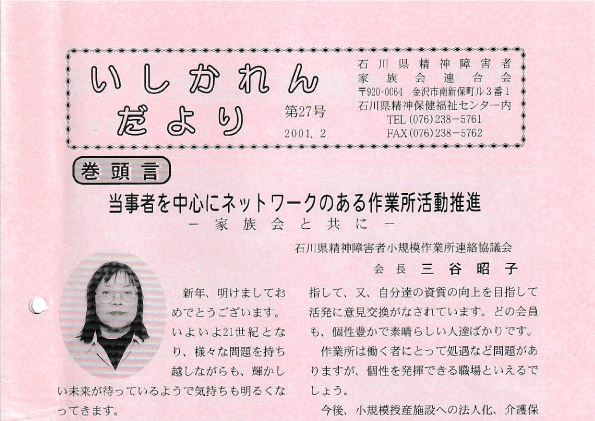 いしかれん
だより
第27号
2001.2
石川県精神障害者
家族会連合会
〒920-0064 金沢市南新保町ル3番1
石川県精神保健福祉センター内
TEL(076)238-5761
FAX(076)238-5762
巻頭言
当事者を中心にネットワークのある作業所活動推進
－家族会と共に－
石川県精神障害者小規模作業所連絡協議会
会長 三谷昭子
新年、明けましてお
めでとうございます。
いよいよ21世紀とな
り、様々な問題を持ち
越しながらも、輝かし
い未来が待っているようで気持ちも明るくな
ってきます。
指して、又、自分達の資質の向上を目指して
活発に意見交換がなされています。どの会員
も、個性豊かで素晴らしい人達ばかりです。
作業所は働く者にとって処遇など問題があ
りますが、個性を発揮できる職場といえるで
しょう。
今後、小規模授産施設への法人化、介護保